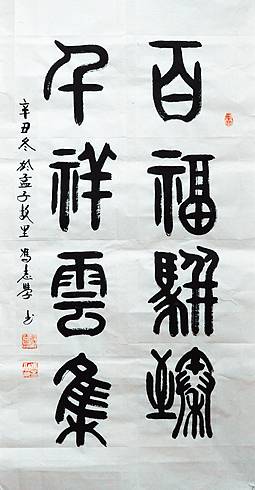 百福駢臻
千祥雲集
辛丑冬於孟子故里馮志學书